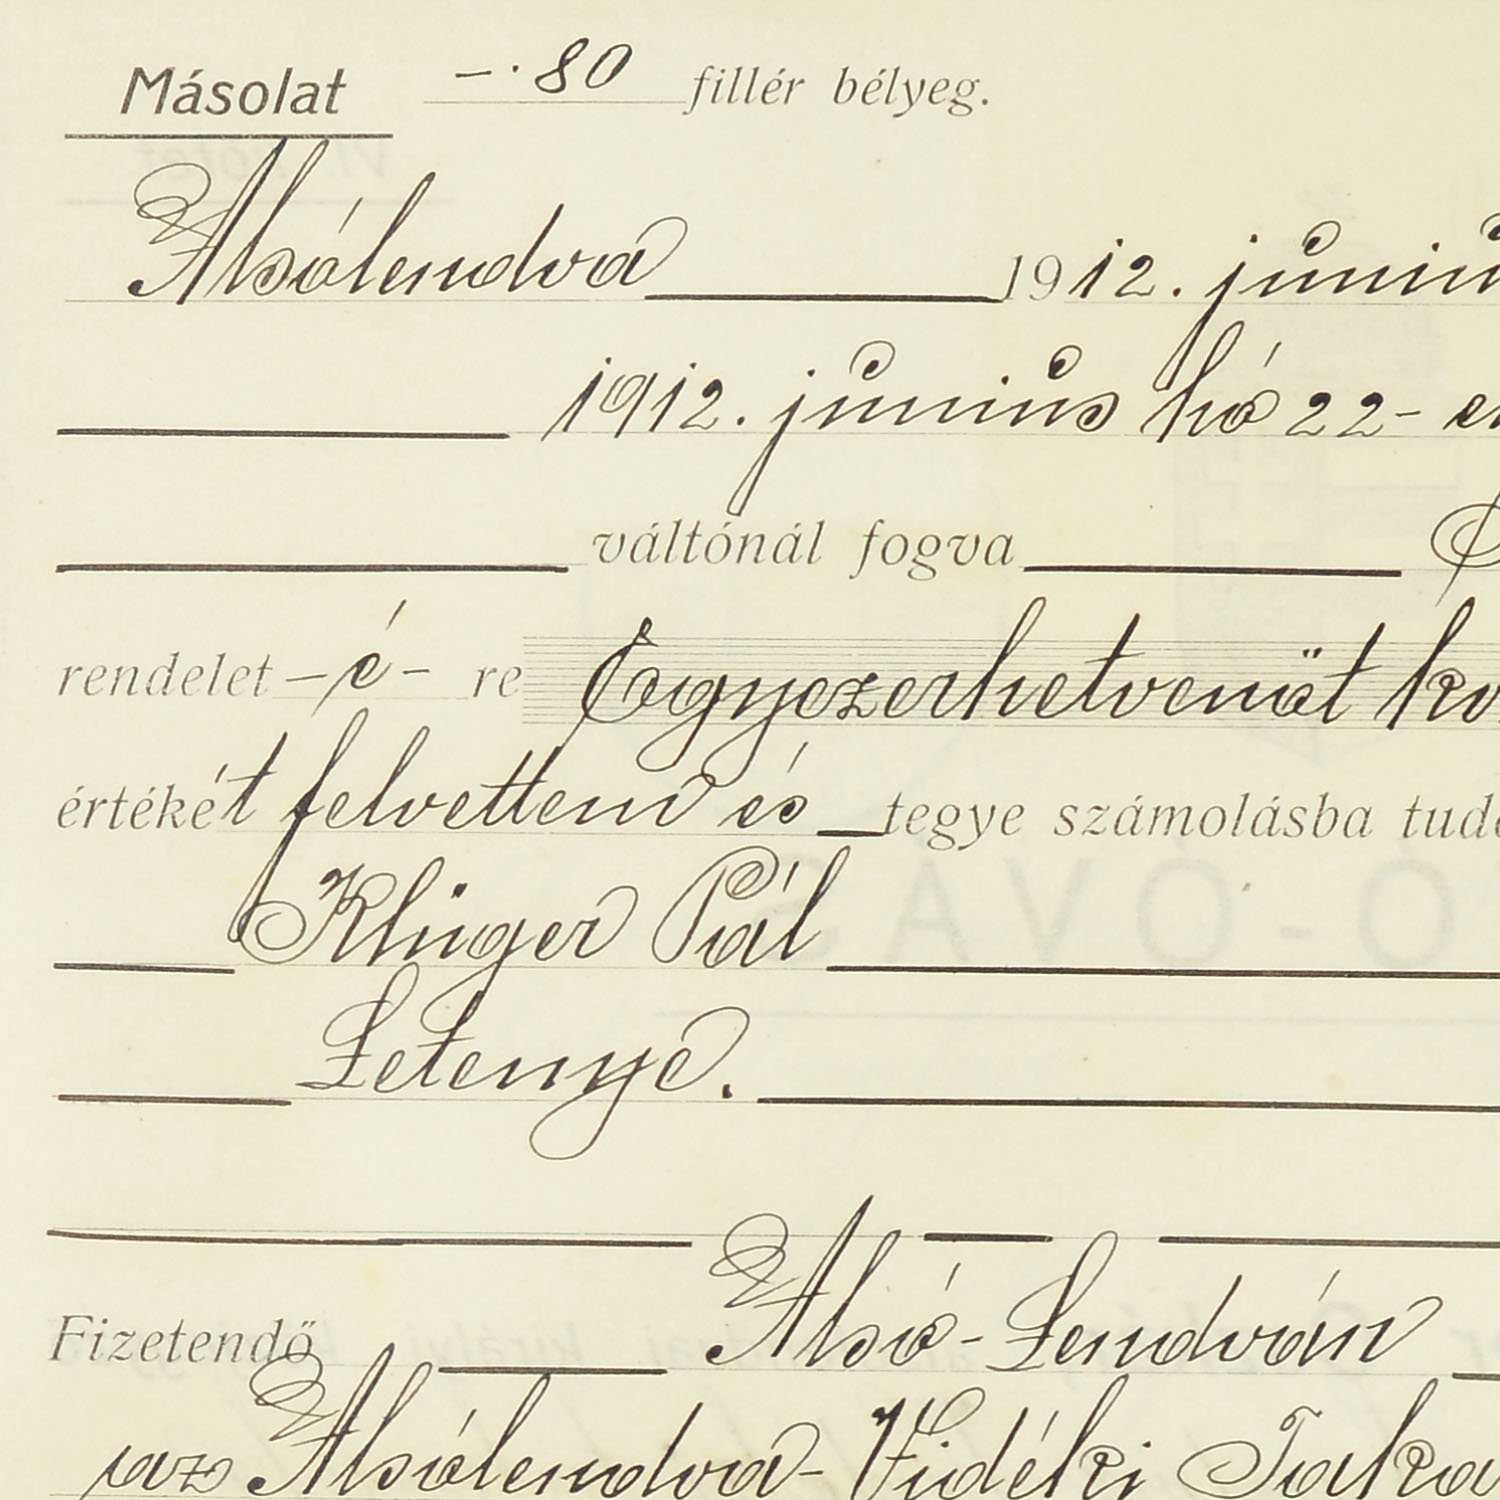 Másolat -·80 fillér bélyeg.
Alsólendva 1912. június
1912. június hó 22-
váltónál fogva
rendelet -é- re Egyezerhetvenöt
értékét felvettem és tegye számolásba
Klüger Pál
Letenye.
Fizetendő Alsó-Lendván
az Alsólendva-Vidéki Taka